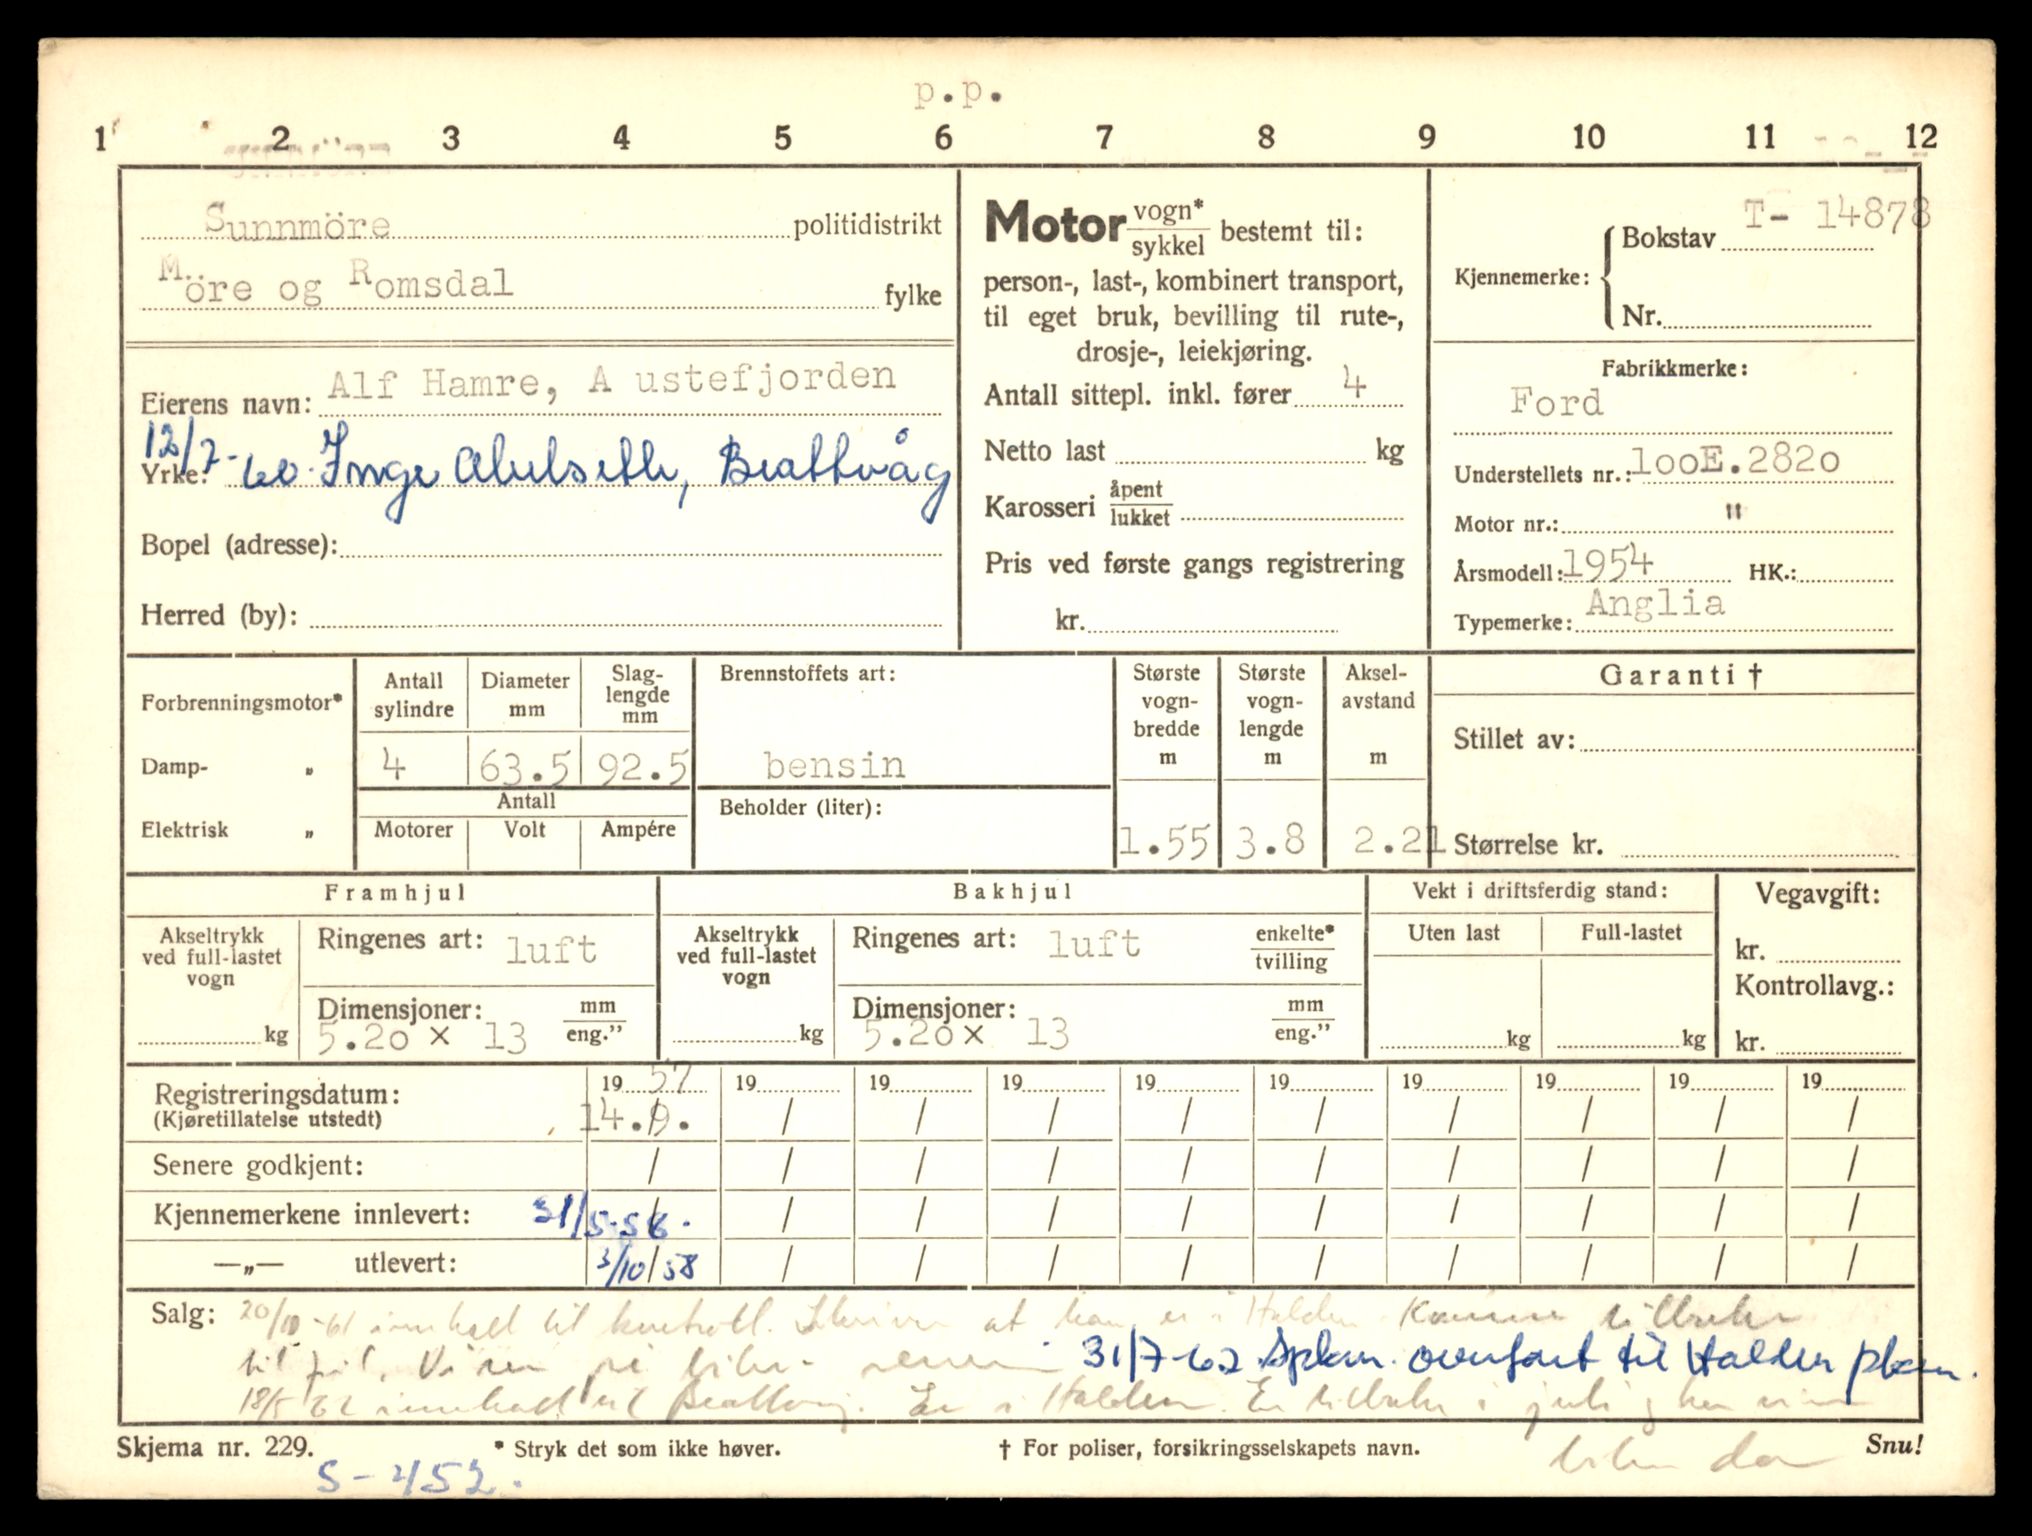 p.p.
1 2 3 4 5 6 7 8 9 10 11 12
Sunnmöre politidistrikt
Möre og Romsdal fylke
Eierens navn: Alf Hamre, A ustefjorden
Yrke: 12/7-60. Inge Alvlseth, Brattvåg
Bopel (adresse):
Herred (by):
Motor vogn*/sykkel bestemt til:
person-, last-, kombinert transport,
til eget bruk, bevilling til rute-,
drosje-, leiekjøring.
Antall sittepl. inkl. fører 4
Netto last kg
Karosseri åpent/lukket
Pris ved første gangs registrering
kr.
Kjennemerke: Bokstav T- 14878
Nr.
Fabrikkmerke:
Ford
Understellets nr.: 100E.2820
Motor nr.: "
Årsmodell: 1954 HK.:
Typemerke: Anglia
Forbrenningsmotor*
Damp- "
Elektrisk "
Antall sylindre Diameter mm Slag-lengde mm
4 63.5 92.5
Antall
Motorer Volt Ampére
Brennstoffets art:
bensin
Beholder (liter):
Største vogn-bredde m Største vogn-lengde m Aksel-avstand m
1.55 3.8 2.21
Garanti †
Stillet av:
Størrelse kr.
Framhjul
Akseltrykk ved full-lastet vogn
kg
Ringenes art: luft
Dimensjoner: mm/eng."
5.20 x 13
Bakhjul
Akseltrykk ved full-lastet vogn
kg
Ringenes art: luft enkelte*/tvilling
Dimensjoner: mm/eng."
5.20x 13
Vekt i driftsferdig stand:
Uten last Full-lastet
kg kg
Vegavgift:
kr.
Kontrollavg.:
kr.
Registreringsdatum: 19 57 19 19 19 19 19 19 19 19 19
(Kjøretillatelse utstedt) 14.9. / / / / / / / / /
Senere godkjent: / / / / / / / / / /
Kjennemerkene innlevert: 31/5-58. / / / / / / / / /
—„— utlevert: 3/10/58 / / / / / / / / /
Salg: 20/10-61 innkalt til kontroll. Skriver at han er i Halden. Kommer tilbake
til jul. Vi ser på bilen senere 31/7-62 Spkm. overført til Halden pkm.
18/5 62 innkalt til Brattvåg. Er i Halden. Er tilbake i juli
bilen da
Skjema nr. 229. * Stryk det som ikke høver. † For poliser, forsikringsselskapets navn. Snu!
S-452.